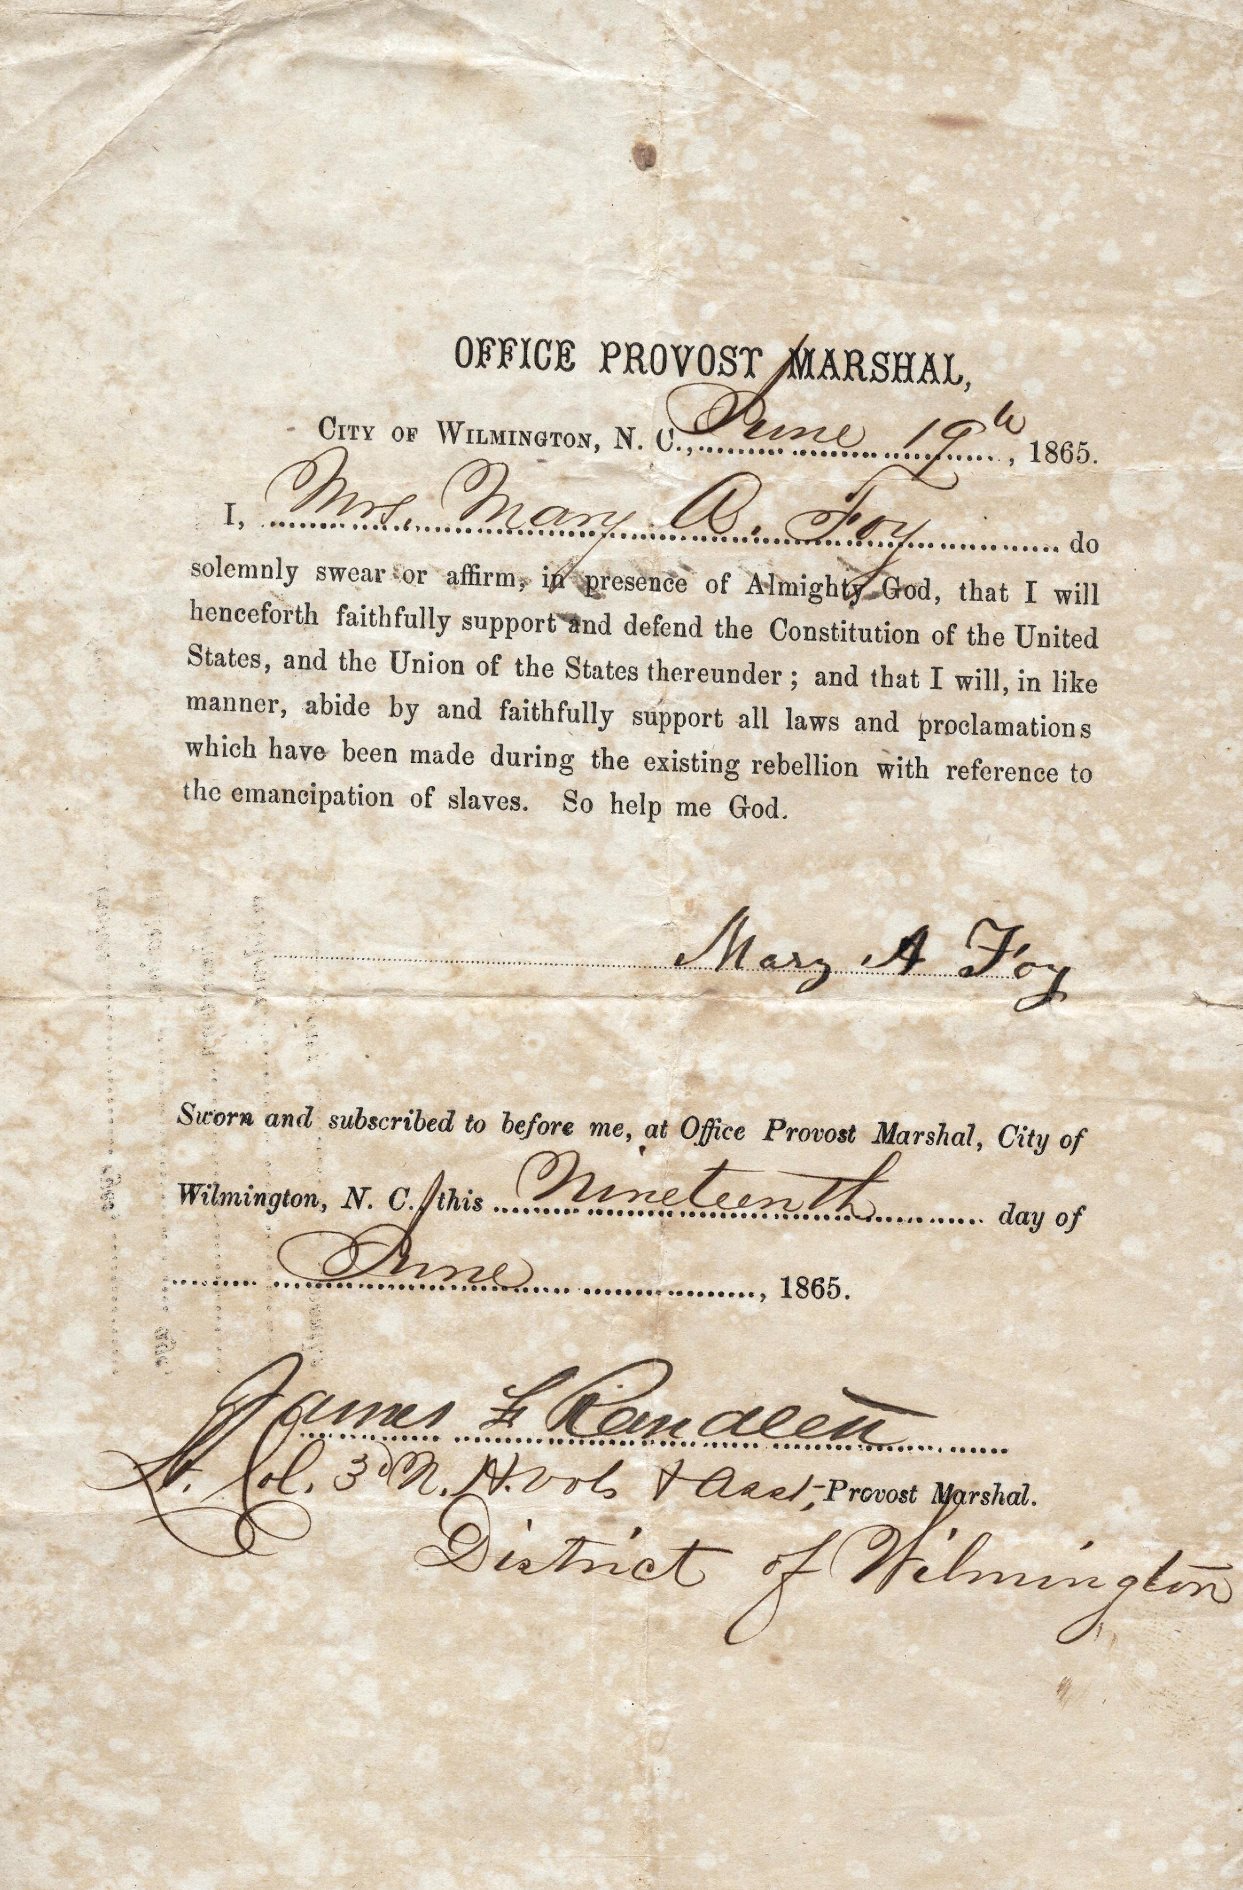 OFFICE PROVOST MARSHAL,
CITY OF WILMINGTON, N. C., June 19th, 1865.
I, Mrs. Mary A. Foy do
solemnly swear or affirm, in presence of Almighty God, that I will
henceforth faithfully support and defend the Constitution of the United
States, and the Union of the States thereunder; and that I will, in like
manner, abide by and faithfully support all laws and proclamations
which have been made during the existing rebellion with reference to
the emancipation of slaves. So help me God.
Mary A Foy
Sworn and subscribed to before me, at Office Provost Marshal, City of
Wilmington, N. C., this Nineteenth day of
June, 1865.
James F Randlett
Lt. Col. 3d N. H. Vols & Asst, Provost Marshal.
District of Wilmington